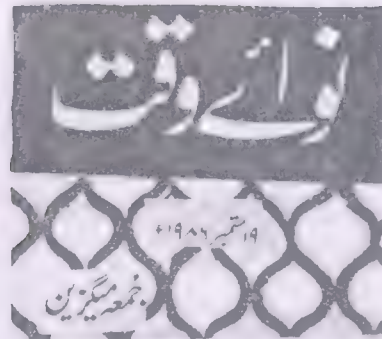 نوائے وقت
۱۹ ستمبر ۱۹۸۶ء
جمعہ میگزین